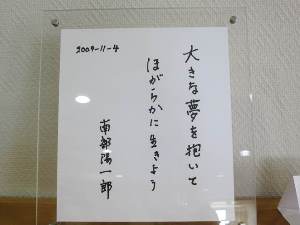 大きな夢を抱いて
ほがらかに生きよう
2009-11-4
南部陽一郎